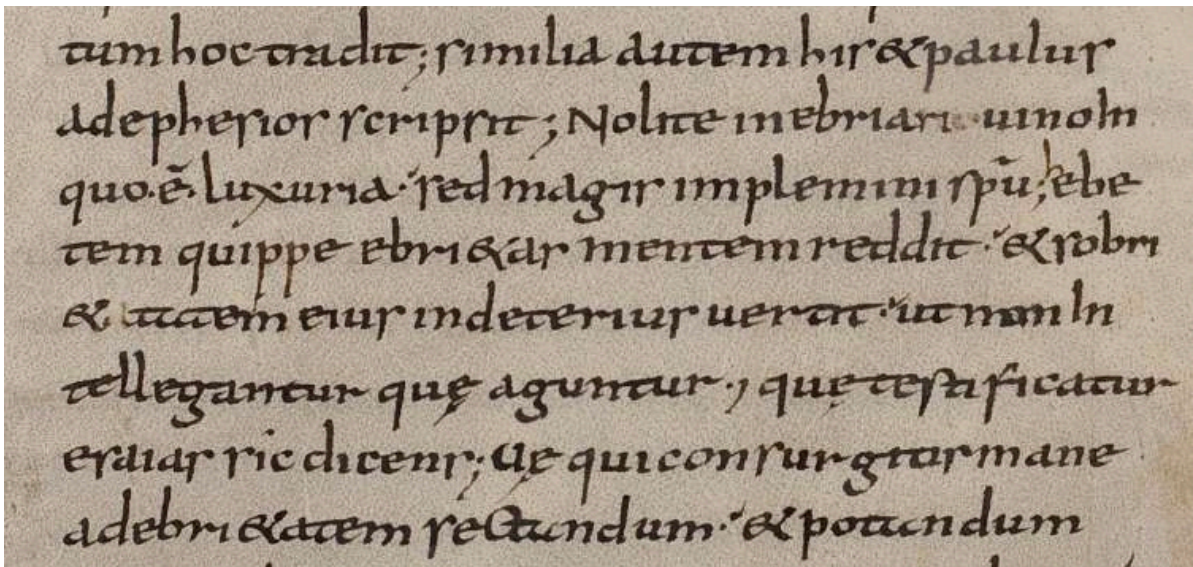 tum hoc tradit; similia autem his & paulus
ad ephesios scripsit; Nolite inebriari uino In
quo ē luxuria. sed magis implemini spū; hebe
tem quippe ebri&as mentem reddit. & sobri
&atem eius in deterius uertit. ut non In
tellegantur quę aguntur; quę testificatur
esaias sic dicens; Uę qui consurgitis mane
ad ebri&atem sectandum. & potandum